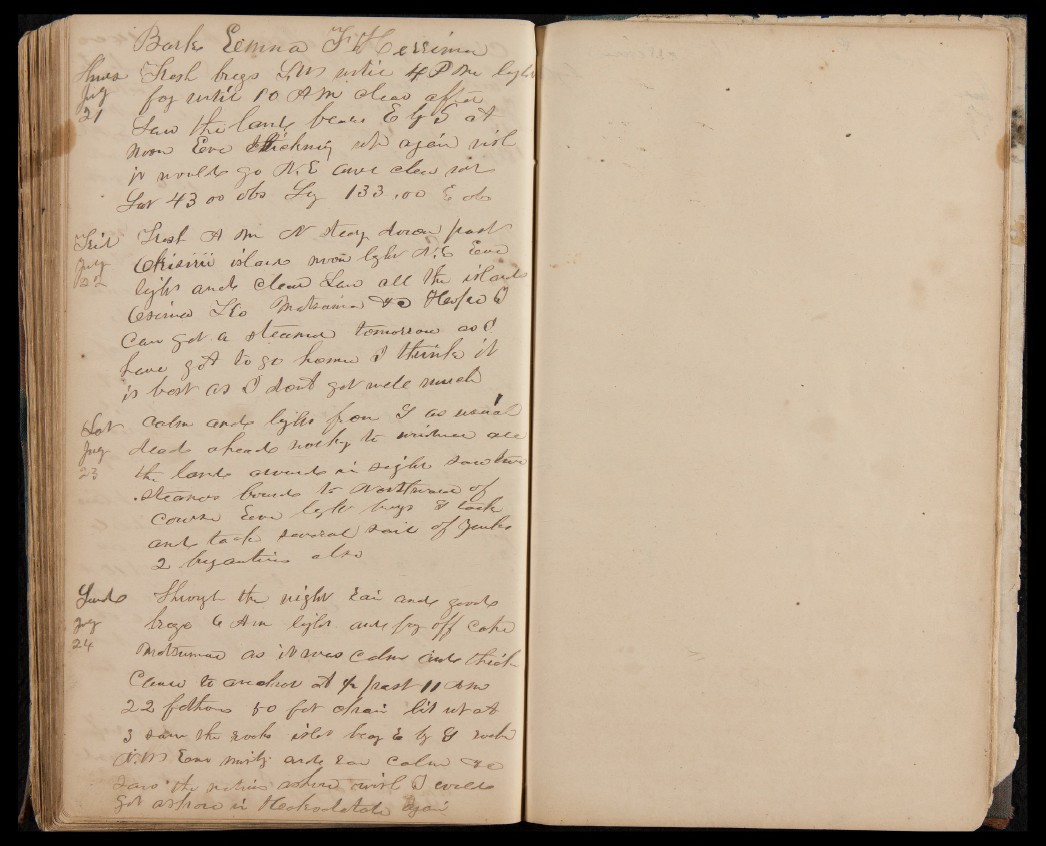 Bark Emma F. Herriman
Thurs Fresh brege S.W until 4 P Me light
July fog until 10 A M clear after
21 Saw the land bears E by S at
noon Eve thickning up again wish
it would go N.E and clear air
Lat 43 00 obs Lg 133 .00 E obs
Frid Fresh A Me N steady down past
July Okisiri island noon light N.E Eve
22 light and clear Saw all the islands
Osima Ko Matsuma &c Hope I
Can get a steamer tomorrow as I
have got to go home I think it
is best as I dont get well much
Sat calm and light from S as usual
July dead ahead nothing to windward all
23 the land around in sight saw two
steamers bound to Westward of
course Eve light bregs S tack
and tack several sail of Junks
2 brigantines also
Sund Through the night rain and good
July brege 6 A m light and fog off Cape
24 Matsumae as it was calm and thick
Came to anchor at ½ past 11 A M
22 fathoms 50 fat chain lit up at
3 saw the rocks islet beag E by S rocks
N.W Eve misty and rain calm &c
Saw the natives ashore wish I could
get ashore in Hakodate again